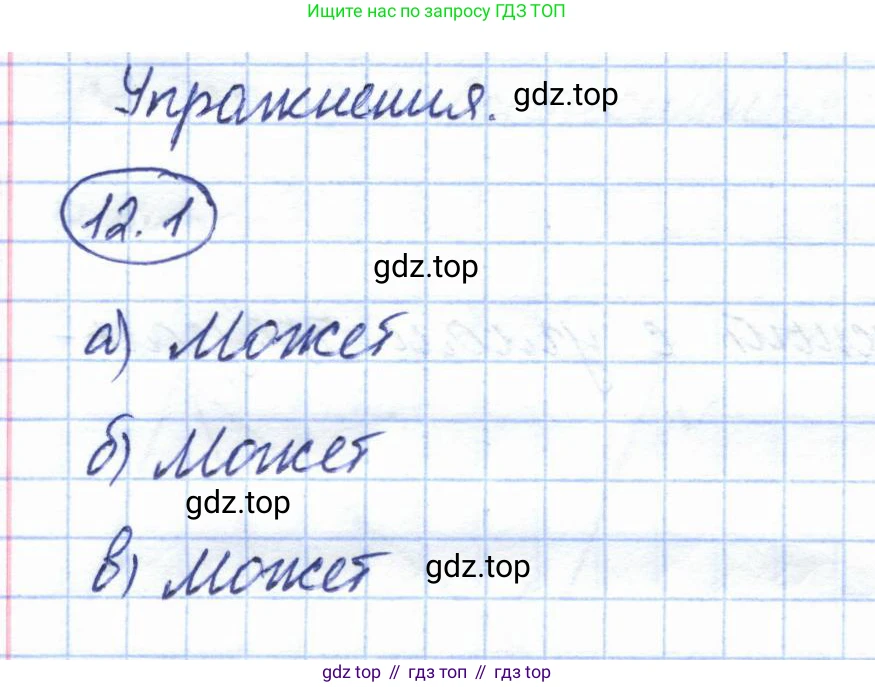 Ищите нас по запросу ГДЗ ТОП
Упражнения. gdz.top
12.1
gdz.top
а) Может
б) Может
gdz.top
в) Может gdz.top
gdz top // гдз топ // gdz top